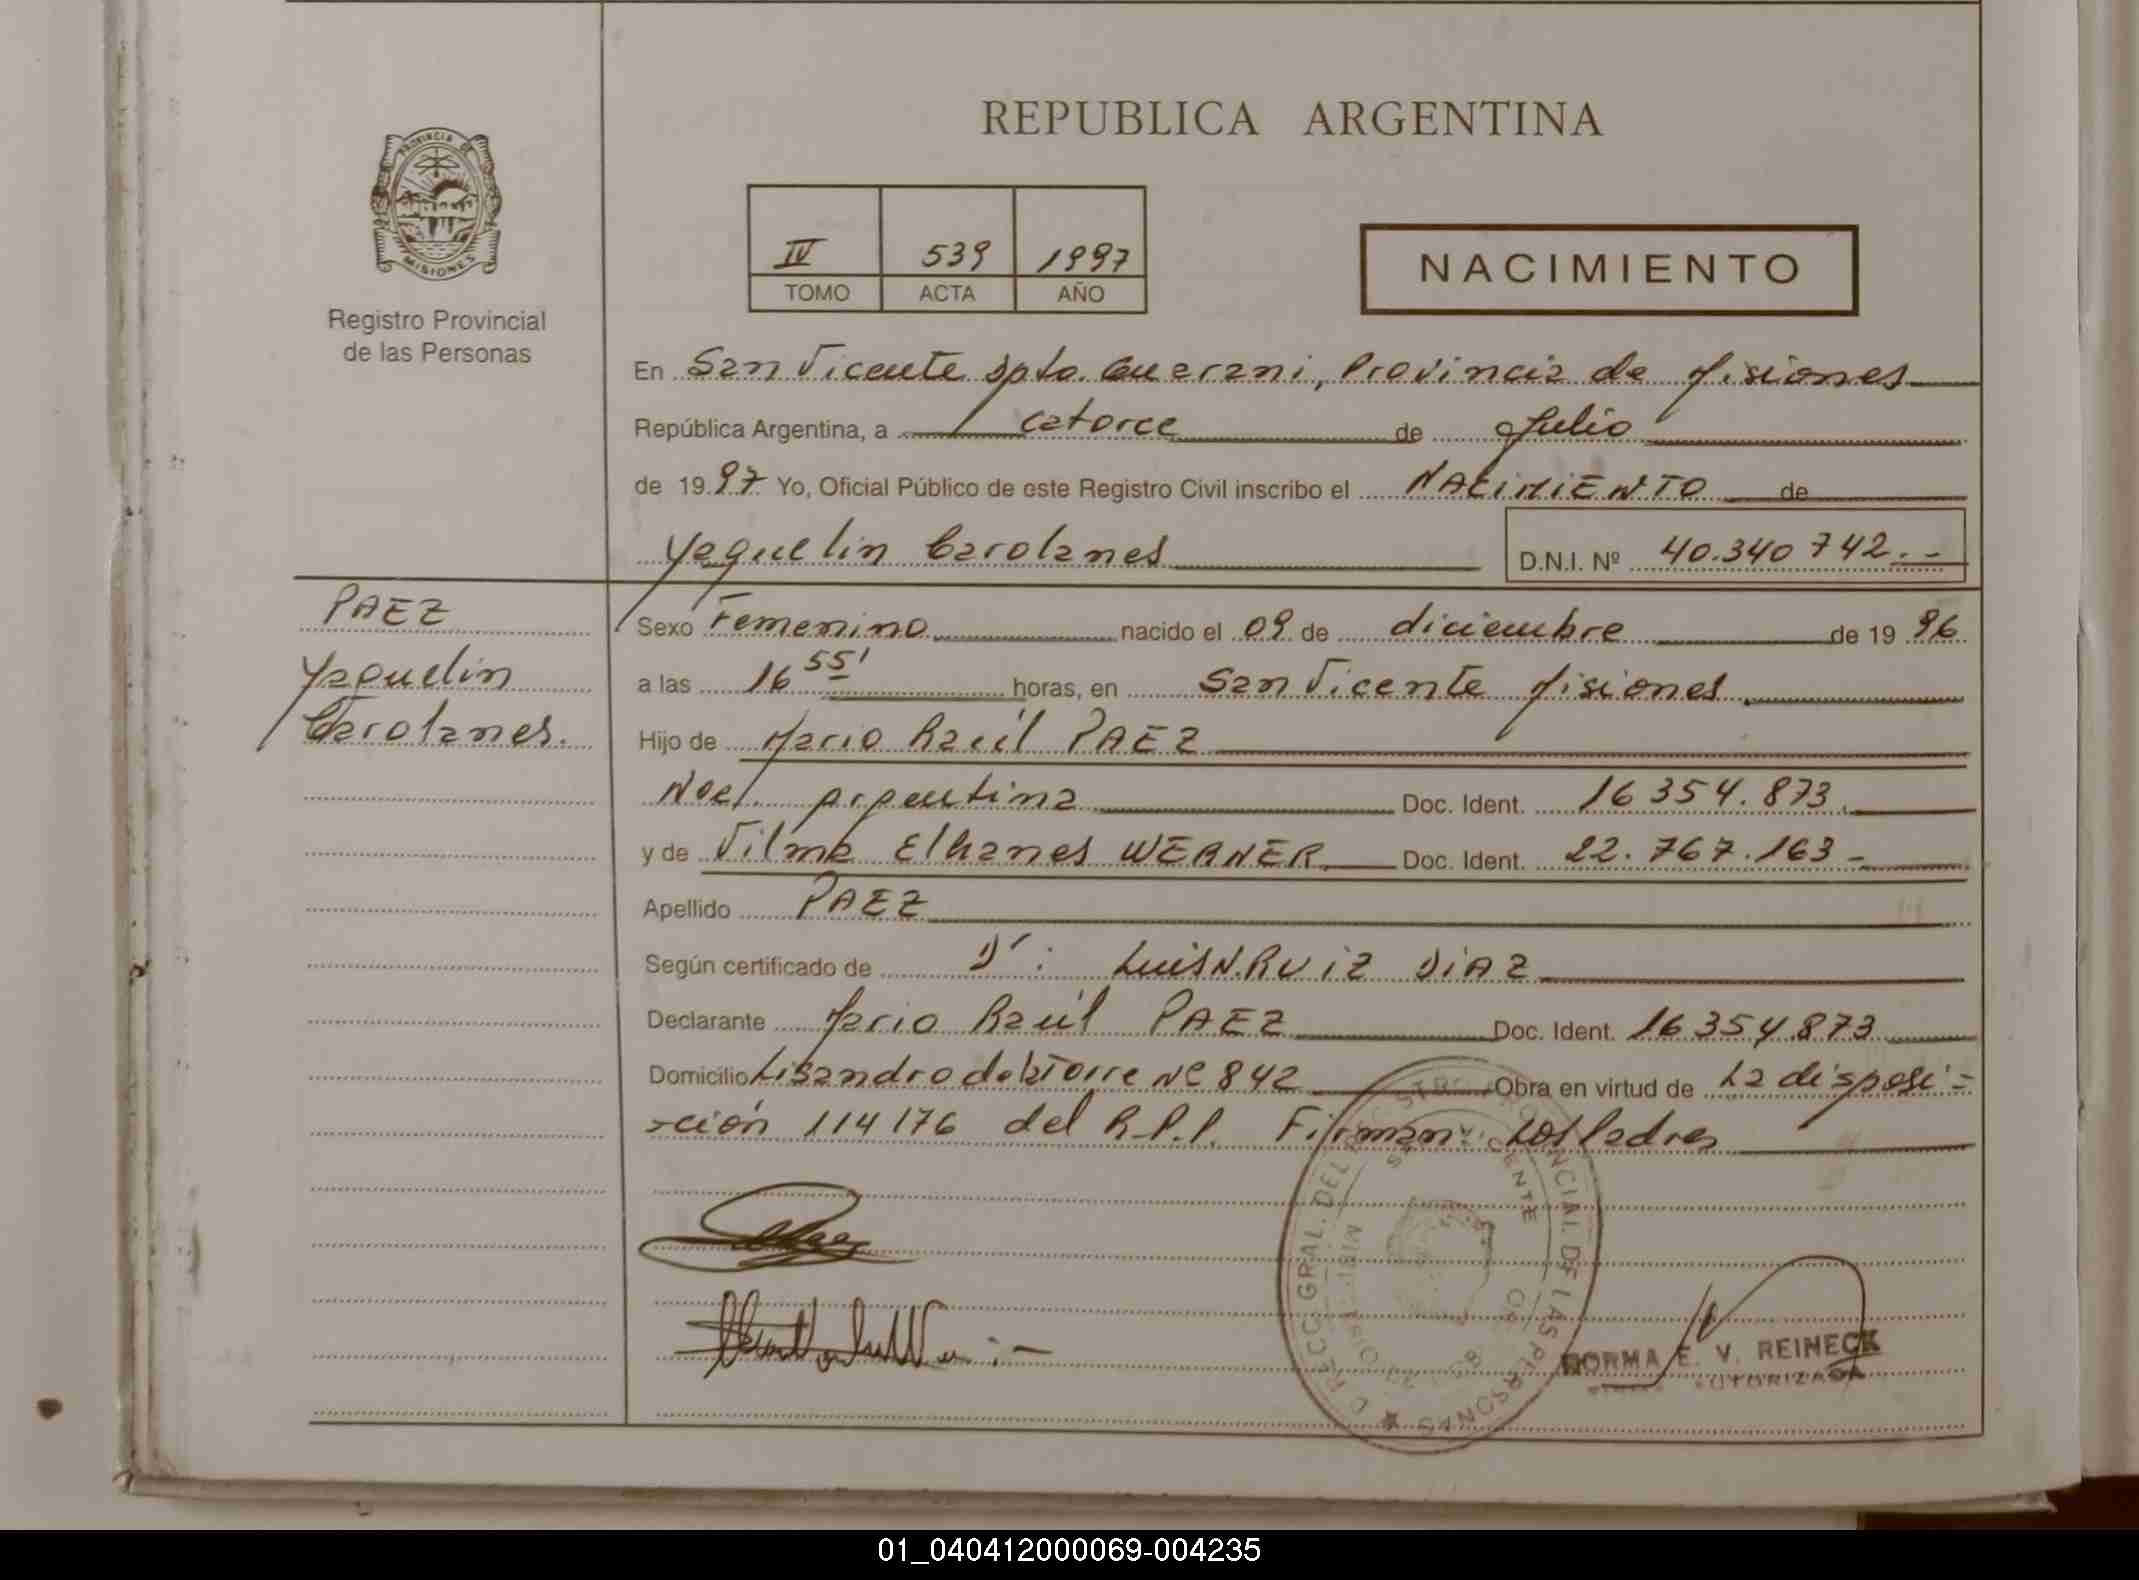 PROVINCIA DE
MISIONES
Registro Provincial
de las Personas
PAEZ
Yaquelin
Carolanes.
REPUBLICA ARGENTINA
IV 539 1997
TOMO ACTA AÑO
NACIMIENTO
En San Vicente Dpto. Guarani, Provincia de Misiones
República Argentina, a catorce de Julio
de 1997 Yo, Oficial Público de este Registro Civil inscribo el NACIMIENTO de
Yaquelin Carolanes D.N.I. Nº 40.340742.-
Sexo Femenino nacido el 09 de diciembre de 1996
a las 16 55' horas, en San Vicente Misiones
Hijo de Mario Raúl PAEZ
Nac. Argentina Doc. Ident. 16354.873.
y de Vilma Elhanes WERNER Doc. Ident. 22.767.163-
Apellido PAEZ
Según certificado de Dr: Luis N. RUIZ DIAZ
Declarante Mario Raúl PAEZ Doc. Ident. 16354.873
Domicilio Lisandro de la Torre Nº 842 Obra en virtud de La disposi-
-ción 114176 del R.P.P. Firman: Los Padres
DIRECC. GRAL. DEL REGISTRO PROVINCIAL DE LAS PERSONAS
NORMA E. V. REINECK
AUTORIZADA
01_040412000069-004235